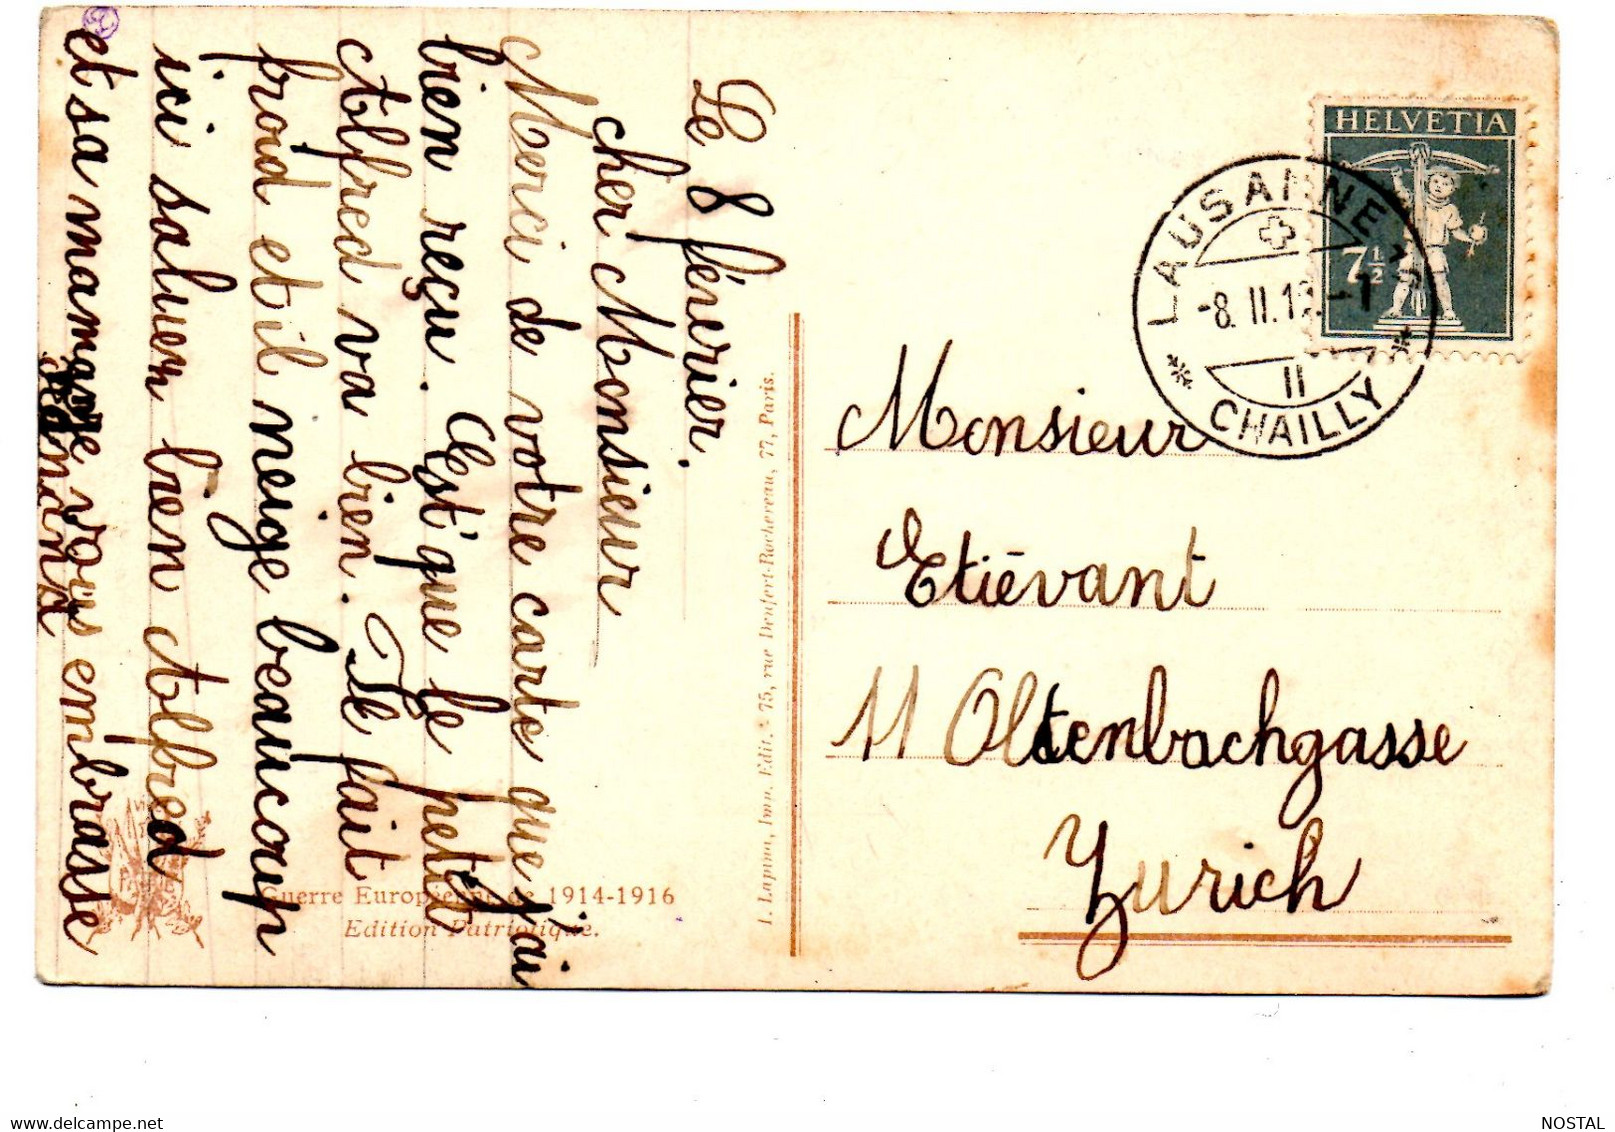 Le 8 février.
cher Monsieur
Merci de votre carte que j'ai
bien reçu. C'est que le petit
Alfred va bien. Il fait
froid et il neige beaucoup
ici saluer bien Alfred
et sa maman vous embrasse
Guerre Européenne de 1914-1916
Edition Patriotique.
PATRIE
I. Lapina, Imp. Edit. - 75, rue Denfert-Rochereau, 77, Paris.
HELVETIA
7½
LAUSANNE
-8. II. 1
II
CHAILLY
Monsieur
Etiévant
11 Oltenbachgasse
Zurich
NOSTAL